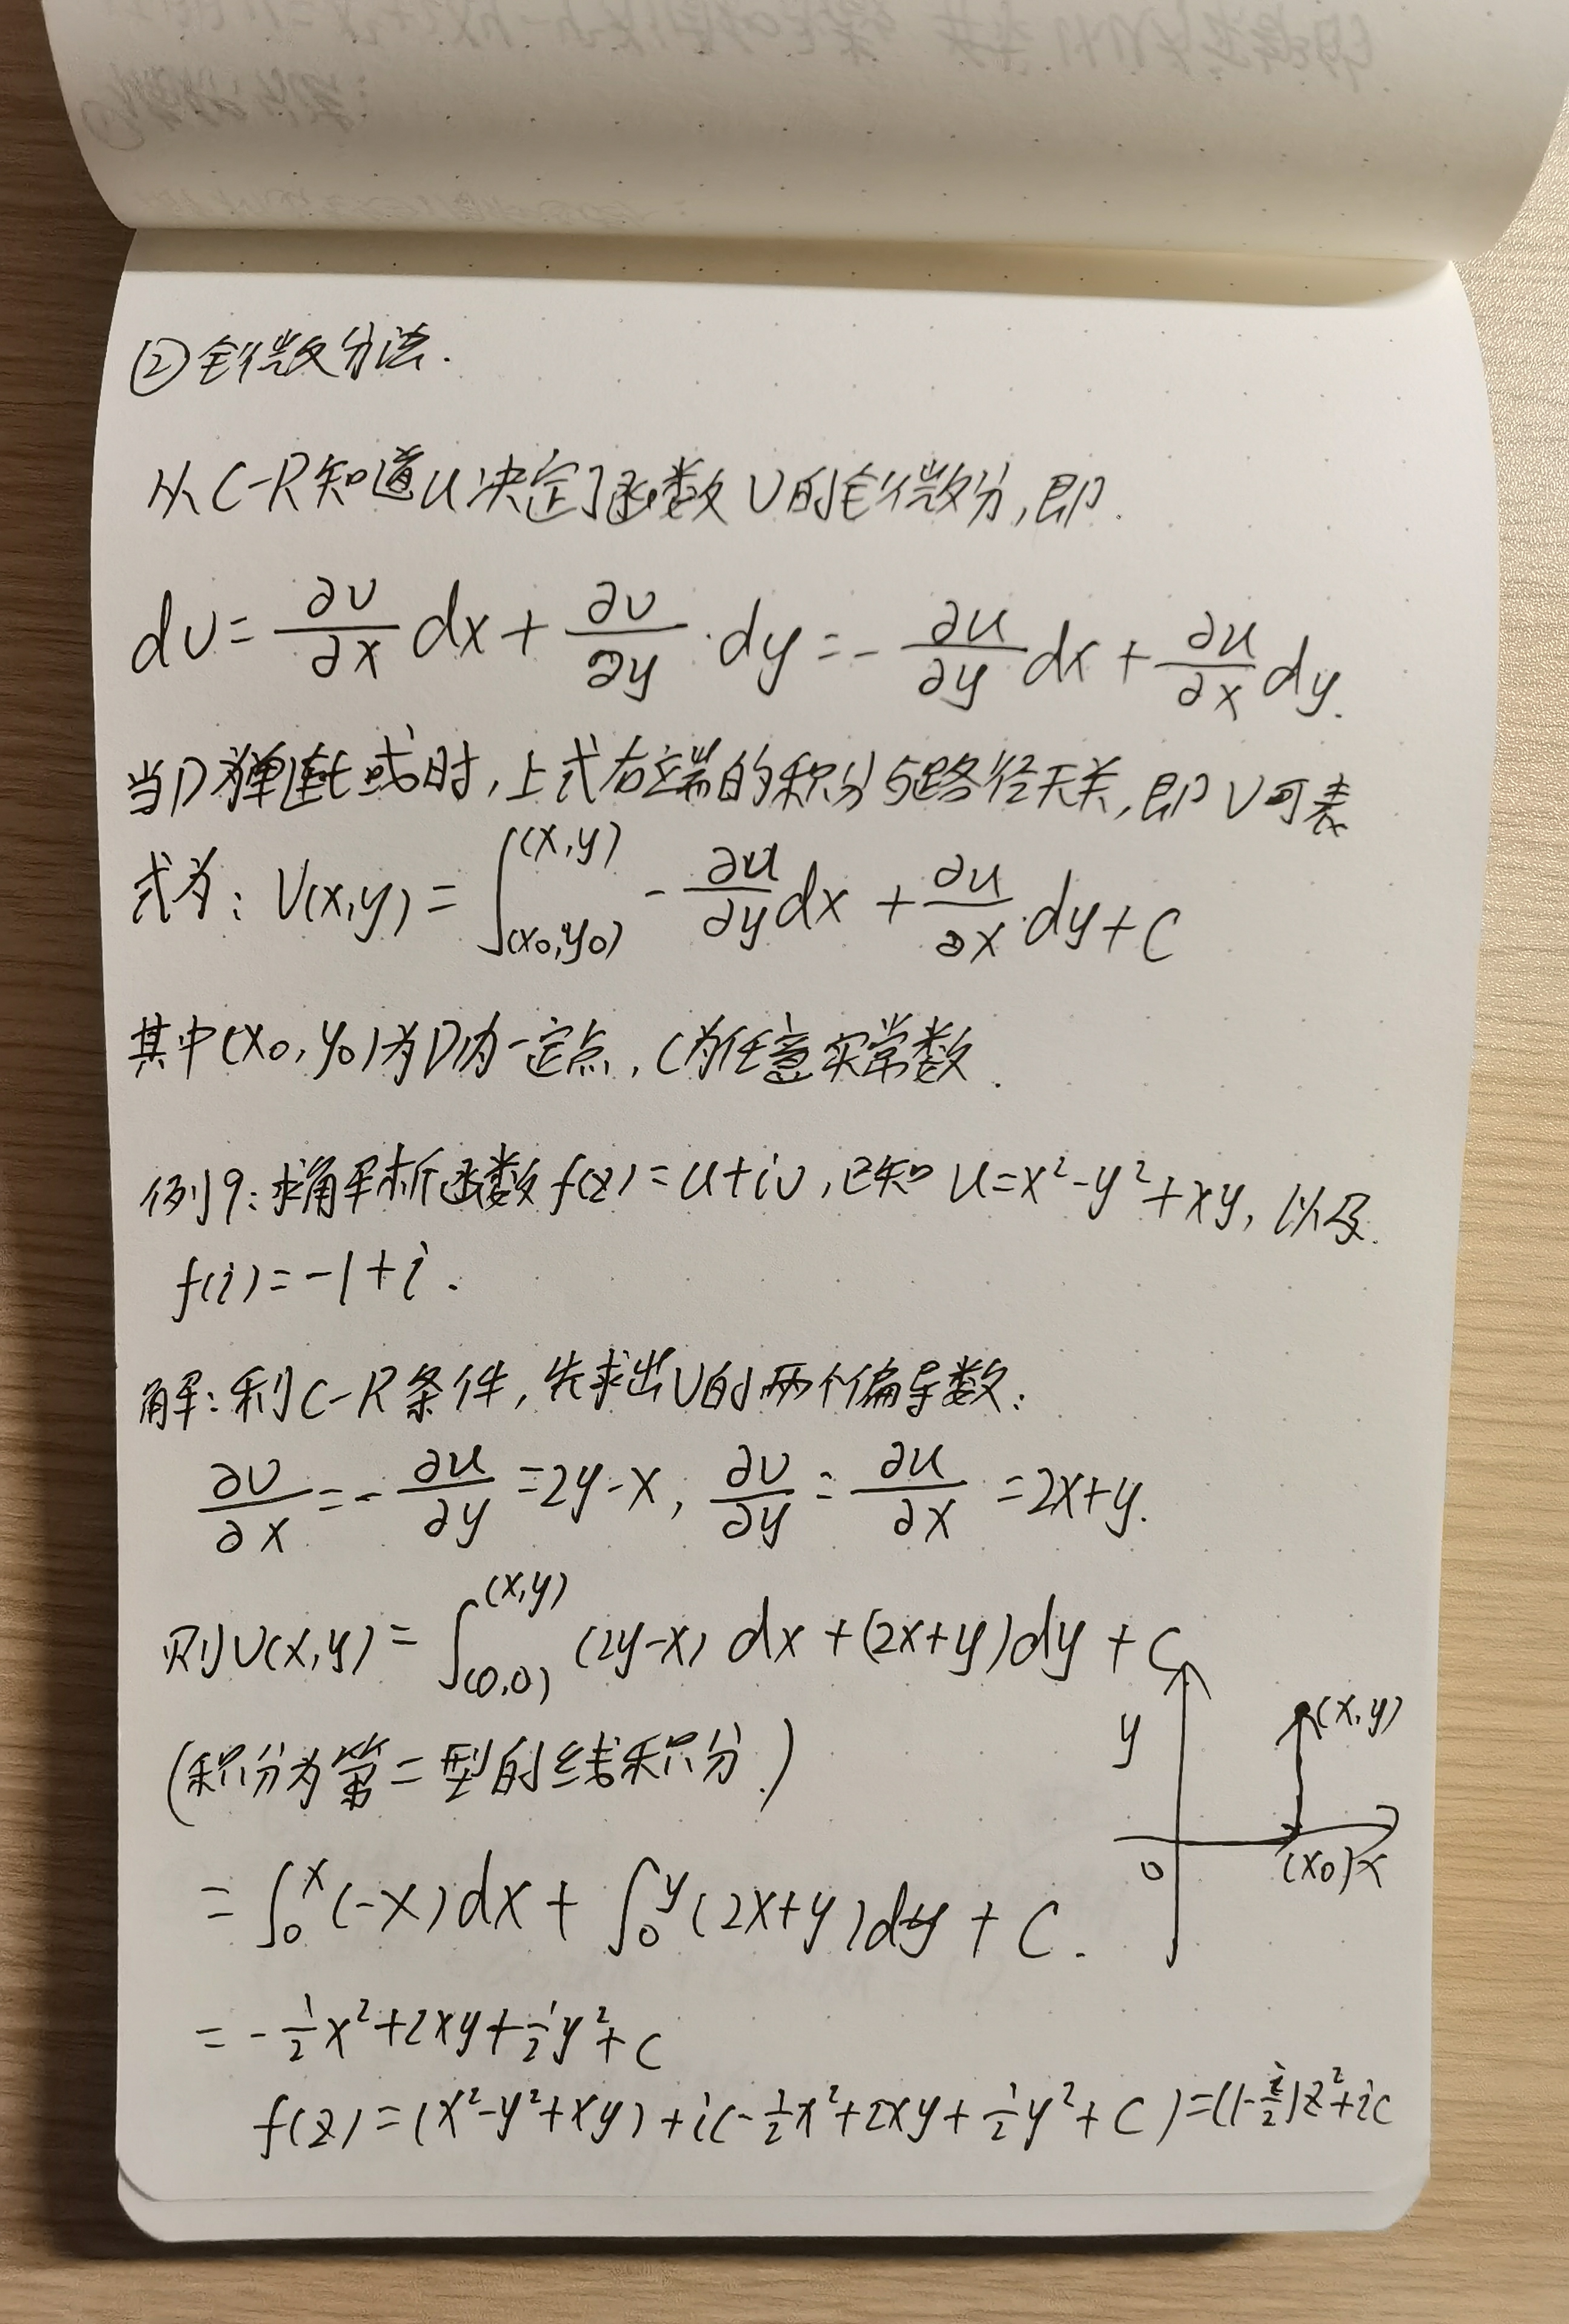 ②全微分法.
从C-R知道u决定了函数v的全微分,即.
dv = ∂v/∂x dx + ∂v/∂y · dy = - ∂u/∂y dx + ∂u/∂x dy.
当D为单连域时,上式右端的积分与路径无关,即v可表
式为: v(x,y) = ∫_(x0,y0)^(x,y) - ∂u/∂y dx + ∂u/∂x · dy + C
其中(x0, y0)为D内一定点, C为任意实常数.
例9: 求解析函数f(z) = u+iv, 已知 u=x²-y²+xy, 以及.
f(i) = -1+i.
解: 利C-R条件, 先求出v的两个偏导数:
∂v/∂x = - ∂u/∂y = 2y-x, ∂v/∂y = ∂u/∂x = 2x+y.
则v(x,y) = ∫_(0,0)^(x,y) (2y-x) dx + (2x+y)dy + C
(积分为第二型的线积分.)
y
(x,y)
0
(x0) x
= ∫_0^x (-x)dx + ∫_0^y (2x+y)dy + C.
= -1/2 x² + 2xy + 1/2 y² + C
f(z) = (x²-y²+xy) + i(-1/2 x² + 2xy + 1/2 y² + C) = (1-i/2)z² + ic